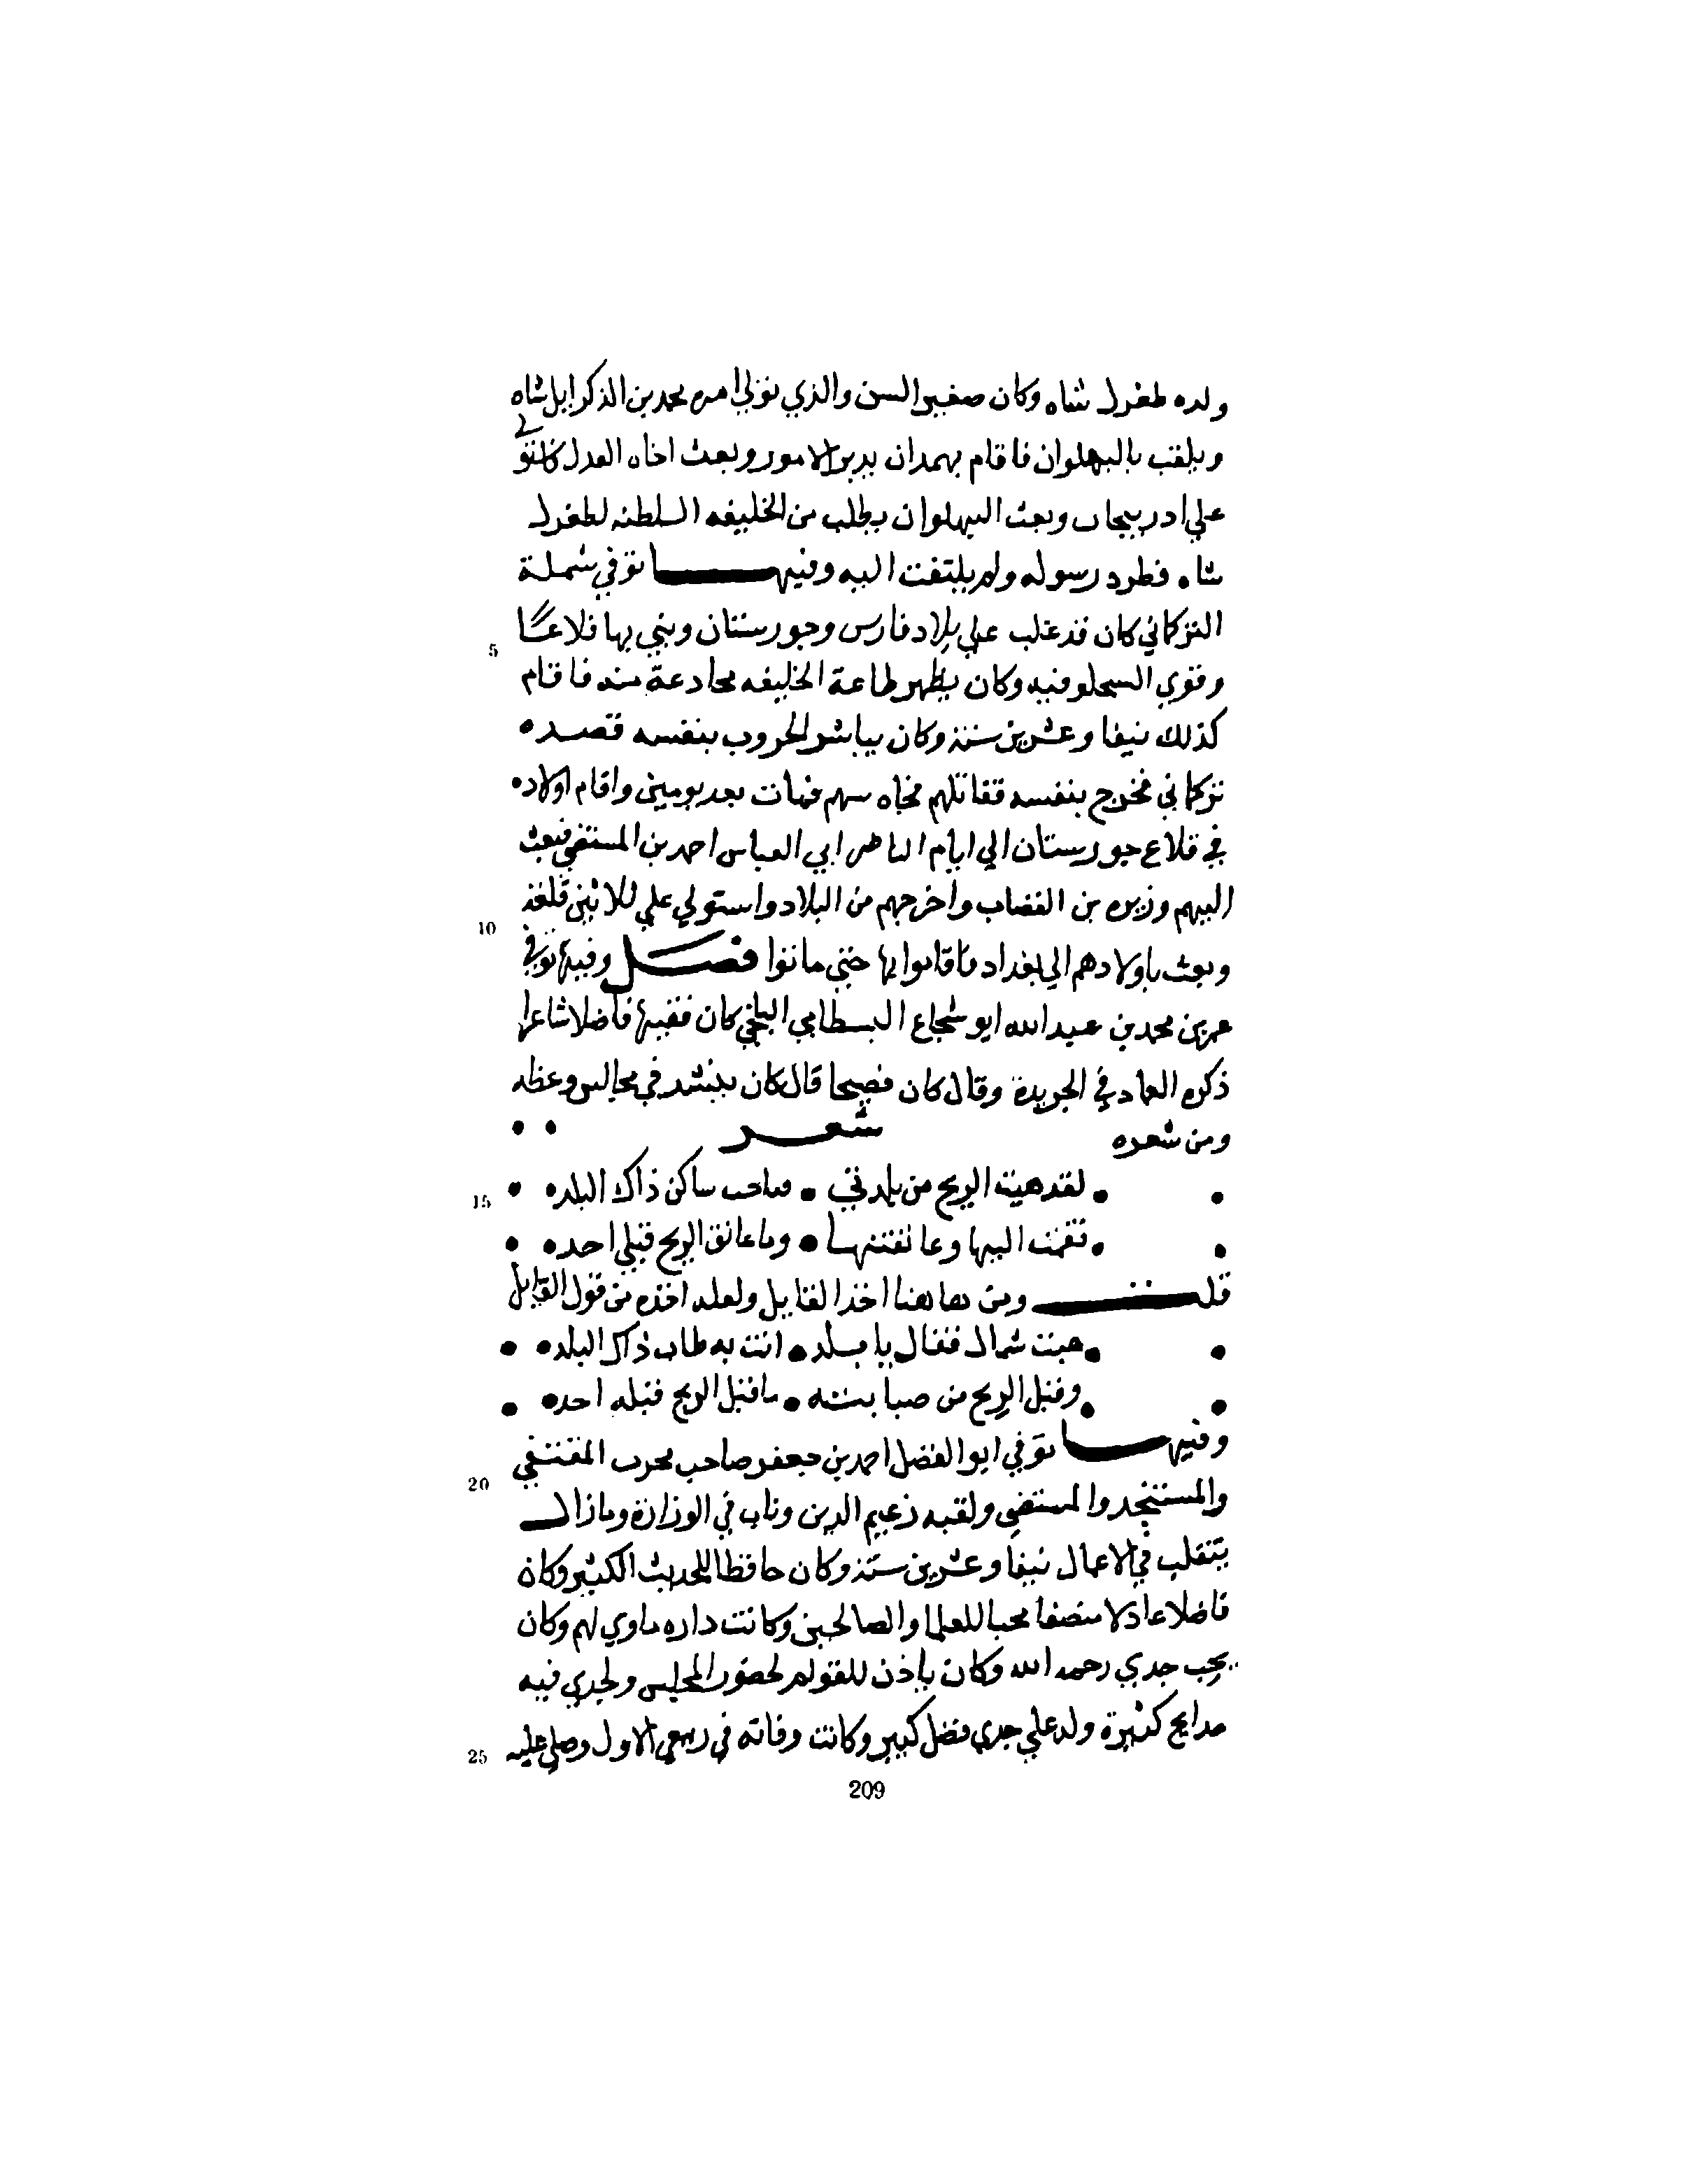 ولده طغرل شاه وكان صغير السن والذي تولي امره محمد بن الذكر ايل شاه
ويلقب بالبهلوان فاقام بهمدان يدبر الامور وبعث اخاه العدل
علي ادربيجان وبعث البهلوان يطلب من الخليفه السلطنه لطغرل
شاه فطرد رسوله ولم يلتفت اليه وفيها توفي شملة
5 التركماني كان قد غلب علي بلاد فارس وخورستان وبني بها قلاعا
وقوي فيه وكان يظهر طاعة الخليفه مخادعة منه فاقام
كذلك نيفا وعشرين سنة وكان يباشر الحروب بنفسه قصده
تركماني فخرج بنفسه فقاتلهم فجاه سهم فمات بعد يومين واقام اولاده
في قلاع خورستان الي ايام الناصر ابي العباس احمد بن المستضي فبعث
10 اليهم وزيره بن القصاب واخرجهم من البلاد واستولي علي ثلاثين قلعة
وبعث باولادهم الي بغداد فاقاموا بها حتي ماتوا فصل وفيها توفي
عمر بن محمد بن عبد الله ابو شجاع البسطامي البلخي كان فقيها فاضلا شاعرا
ذكره العماد في الجريدة وقال كان فصيحا قال كان ينشد في مجالس وعظه
ومن شعره شعر
15 لقد هبت الريح من بلدتي • فباحت ساكن ذاك البلد •
فقمت اليها وعانقتها • وما عانق الريح قبلي احد •
قلت ومن هاهنا اخذ القايل ولعله اخذه من قول القايل
هبت شمال فقال يا بلد • انت به طاب ذاك البلد •
وقبل الريح من صبابته • ما قبل الريح قبله احد •
20 وفيها توفي ابو الفضل احمد بن جعفر صاحب مخزن المقتفي
والمستنجد والمستضي ولقبه زعيم الدين وناب في الوزارة وما زال
يتنقلب في الاعمال نيفا وعشرين سنة وكان حافظا للحديث الكثير وكان
فاضلا عادلا منصفا محبا للعلما والصالحين وكانت داره ماوي لهم وكان
يحب جدي رحمه الله وكان ياذن للقوام لحضور المجلس ولجدي فيه
25 مدايح كثيرة وله علي جدي فضل كبير وكانت وفاته في ربيع الاول وصلي عليه
209